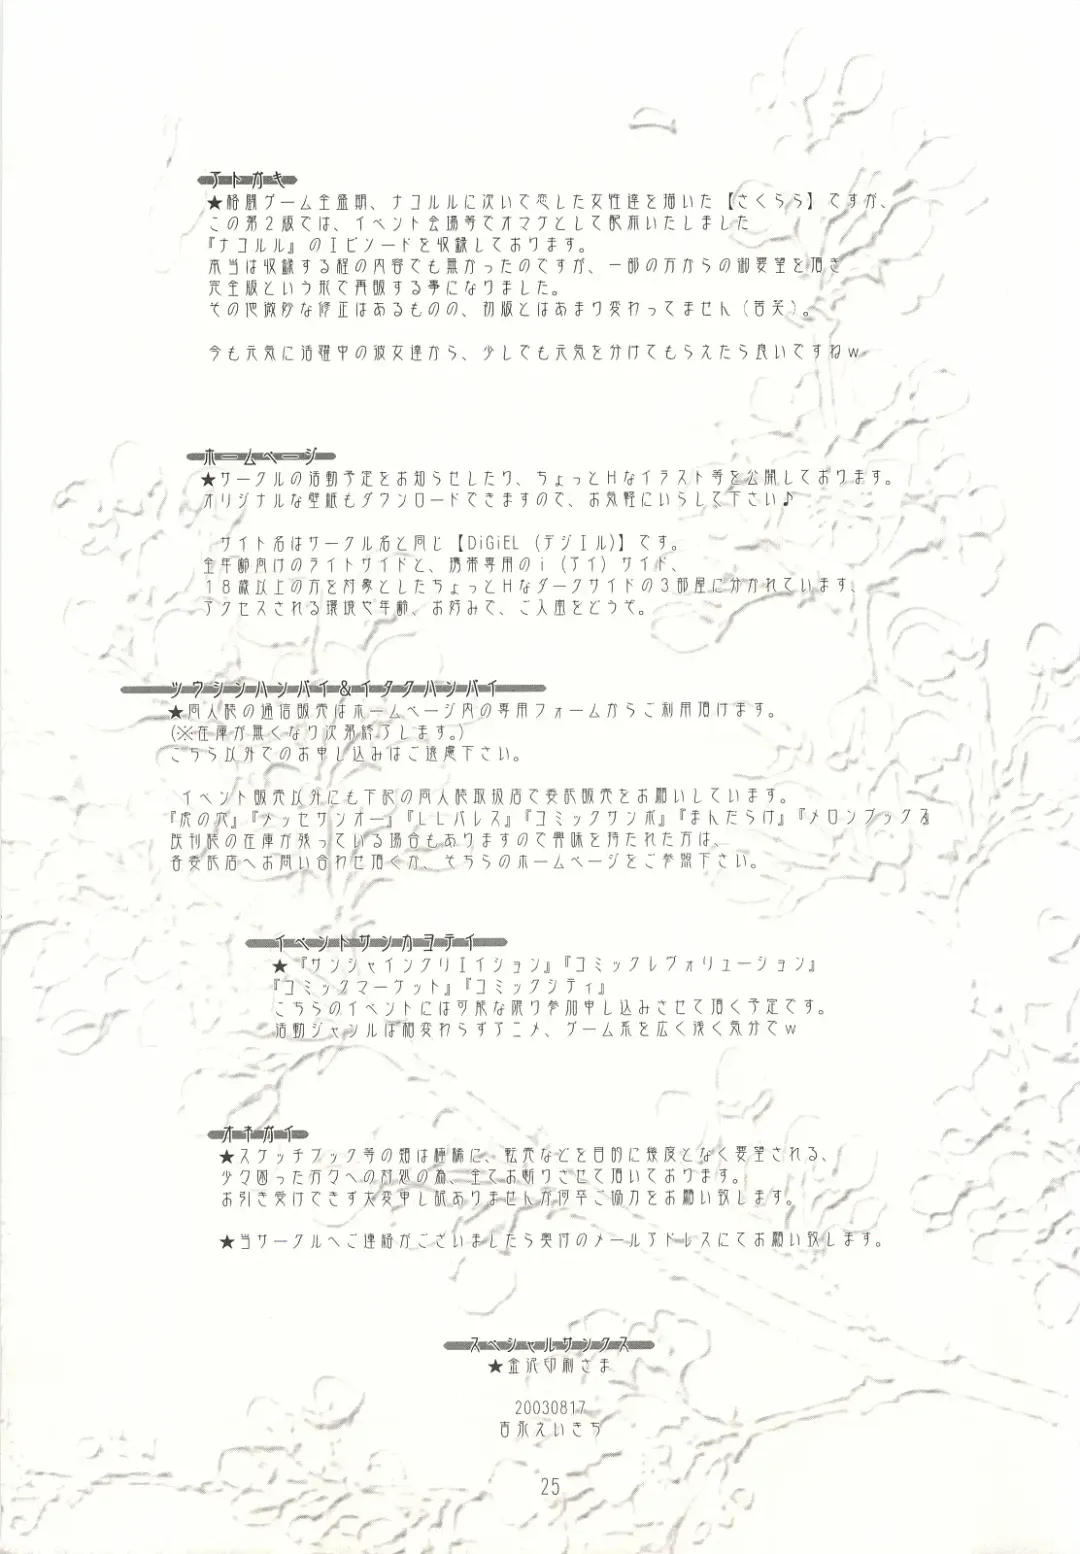 アトガキ
★格闘ゲーム全盛期、ナコルルに次いで恋した女性達を描いた【さくらら】ですが、
この第２版では、イベント会場等でオマケとして配布いたしました
『ナコルル』のエピソードを収録しております。
本当は収録する程の内容でも無かったのですが、一部の方からの御要望を頂き
完全版という形で再販する事になりました。
その他微妙な修正はあるものの、初版とはあまり変わってません（苦笑）。
今も元気に活躍中の彼女達から、少しでも元気を分けてもらえたら良いですねｗ
ホームページ
★サークルの活動予定をお知らせしたり、ちょっとＨなイラスト等を公開しております。
オリジナルな壁紙もダウンロードできますので、お気軽にいらして下さい♪
サイト名はサークル名と同じ【DiGiEL（デジエル）】です。
全年齢向けのライトサイドと、携帯専用のｉ（アイ）サイド、
１８歳以上の方を対象としたちょっとＨなダークサイドの３部屋に分かれています、
アクセスされる環境や年齢、お好みで、ご入室をどうぞ。
ツウシンハンバイ＆イタクハンバイ
★同人誌の通信販売はホームページ内の専用フォームからご利用頂けます。
(※在庫が無くなり次第終了します。)
こちら以外でのお申し込みはご遠慮下さい。
イベント販売以外にも下記の同人誌取扱店で委託販売をお願いしています。
『虎の穴』『メッセサンオー』『ＬＬパレス』『コミックサンポ』『まんだらけ』『メロンブックス』
既刊誌の在庫が残っている場合もありますので興味を持たれた方は、
各委託店へお問い合わせ頂くか、そちらのホームページをご参照下さい。
イベントサンカヨテイ
★『サンシャインクリエイション』『コミックレヴォリューション』
『コミックマーケット』『コミックシティ』
こちらのイベントには可能な限り参加申し込みさせて頂く予定です。
活動ジャンルは相変わらずアニメ、ゲーム系を広く浅く気分でｗ
オネガイ
★スケッチブック等の類は極稀に、転売などを目的に幾度となく要望される、
少々困った方々への対処の為、全てお断りさせて頂いております。
お引き受けできず大変申し訳ありませんが何卒ご協力をお願い致します。
★当サークルへご連絡がございましたら奥付のメールアドレスにてお願い致します。
スペシャルサンクス
★金沢印刷さま
20030817
吉永えいきち
25